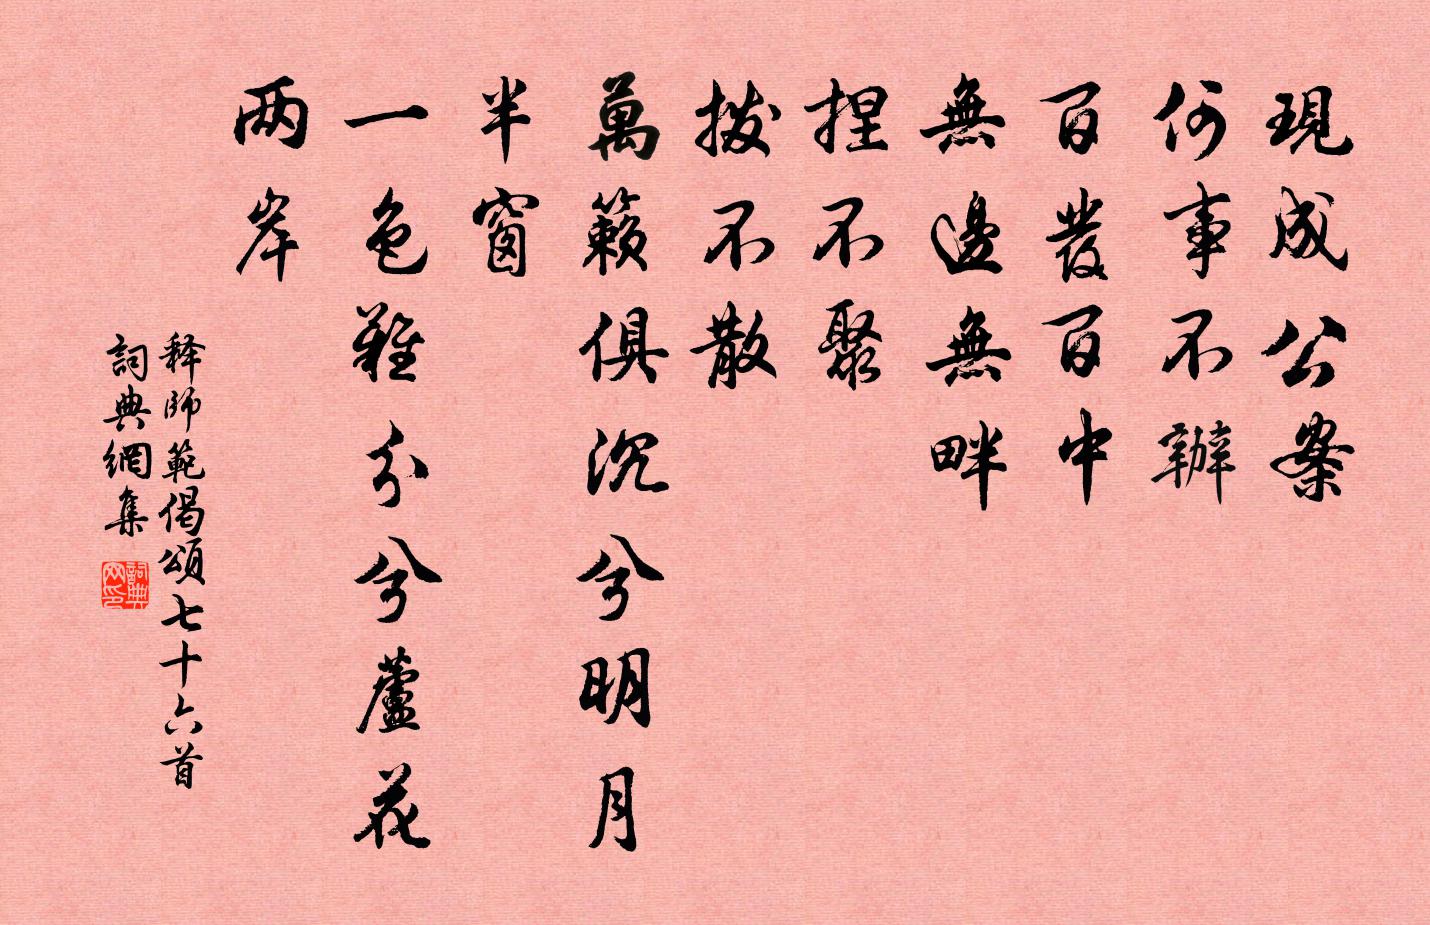 現成公案
何事不辦
百發百中
無邊無畔
捏不聚
撥不散
萬籟俱沉兮明月
半窗
一色難分兮蘆花
两岸
释師範偈頌七十六首
詞典網集
詞典
网印